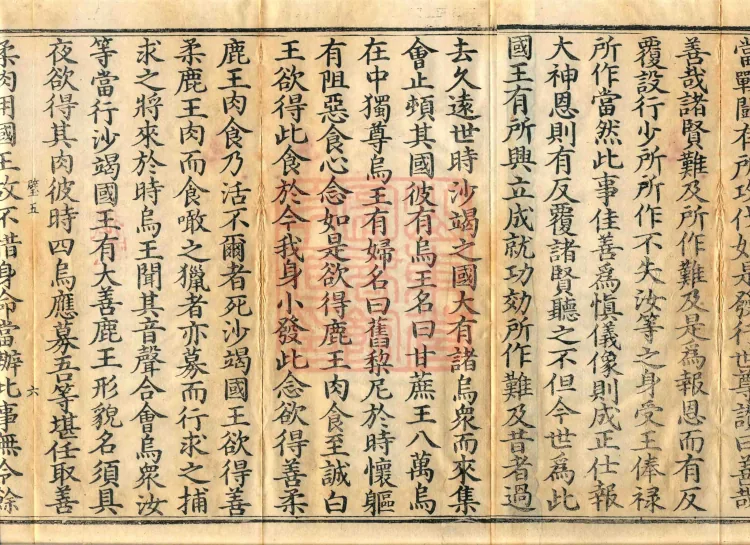 當戰鬪有所功伐如發行世尊讃曰善哉
善哉諸賢難及所作難及是爲報恩而有反
覆設行少所所作不失汝等之身受王俸禄
所作當然此事佳善爲愼儀像則成正仕報
大神恩則有反覆諸賢聽之不但今世爲此
國王有所興立成就功効所作難及昔者過
去久遠世時沙竭之國大有諸烏衆而來集
會止頓其國彼有烏王名曰甘蔗王八萬烏
在中獨尊烏王有婦名曰舊梨尼於時懷軀
有阻惡食心念如是欲得鹿王肉食至誠白
王欲得此食於今我身小發此念欲得善柔
鹿王肉食乃活不爾者死沙竭國王欲得善
柔鹿王肉而食噉之獵者亦募而行求之捕
求之將來於時烏王聞其音聲合會烏衆汝
等當行沙竭國王有大善鹿王形貌名須具
夜欲得其肉彼時四烏應募吾等堪任取善
壁五 六
柔肉用國王故不惜身命當辦此事無令餘